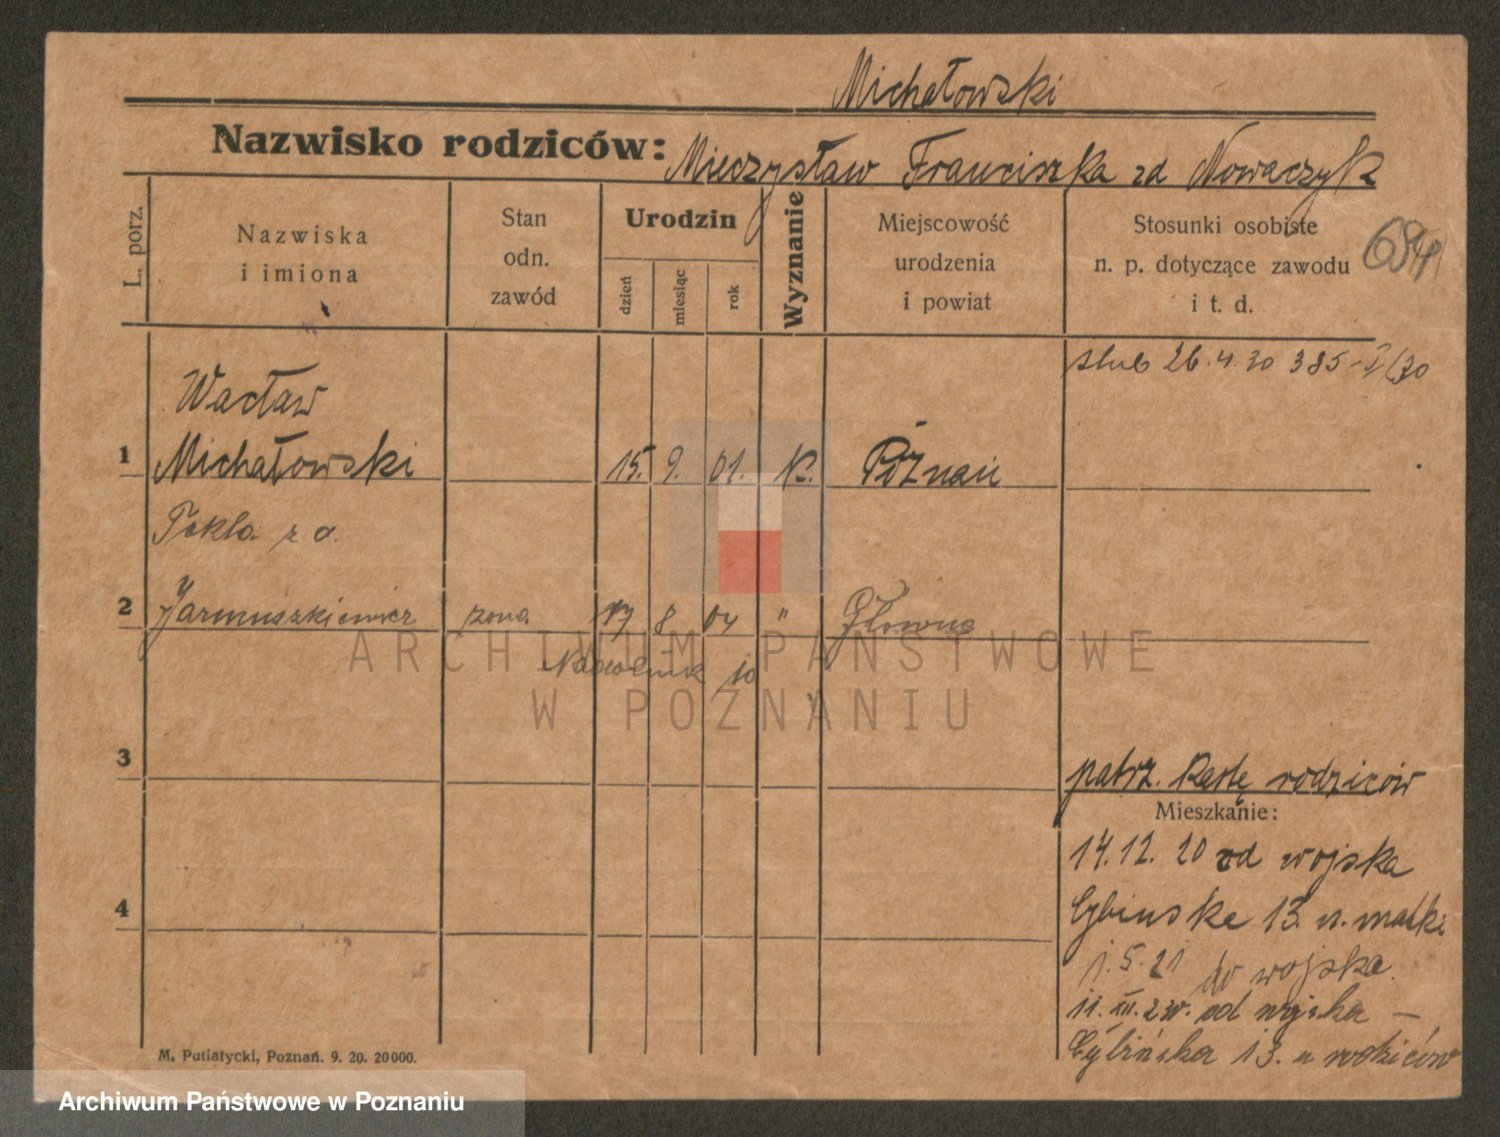 Michałowski
Nazwisko rodziców: Mieczysław Franciszka zd Nowaczyk
L. porz.
Nazwiska
i imiona
Stan
odn.
zawód
Urodzin
dzień
miesiąc
rok
Wyznanie
Miejscowość
urodzenia
i powiat
Stosunki osobiste
n. p. dotyczące zawodu
i t. d.
ślub 26.4.30 385-I/30
Wacław
1 Michałowski 15. 9. 01. K. Poznań
Tekla z d.
2 Jarmuszkiewicz żona 8 04 " Główna
ARCHIWUM PAŃSTWOWE
W POZNANIU
3
patrz. kartę rodziców
Mieszkanie:
14.12.20 od wojska
Cybińska 13. u. matki
4
1.5.21 do wojska.
11.XII. od wojska –
Cybińska 13. u rodziców
M. Putiatycki, Poznań. 9. 20. 20 000.
Archiwum Państwowe w Poznaniu